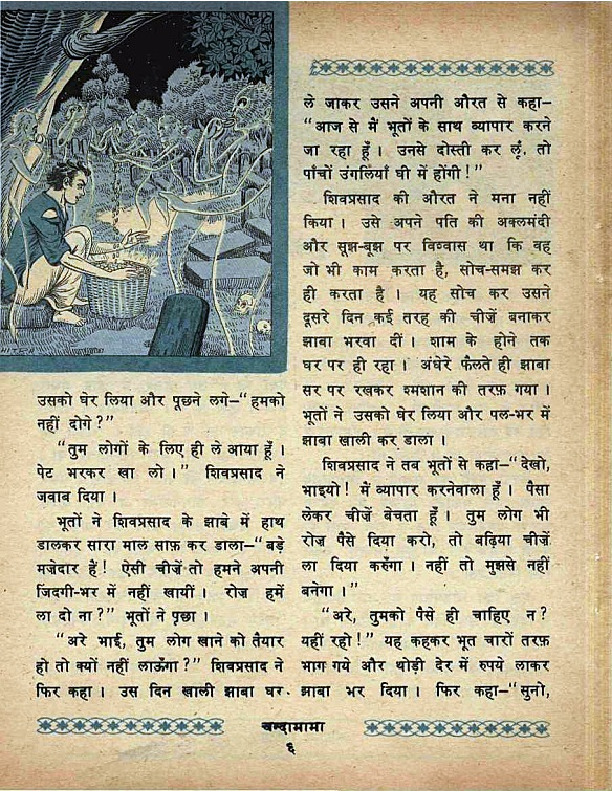 उसको घेर लिया और पूछने लगे–“हमको
नहीं दोगे?”
“तुम लोगों के लिए ही ले आया हूँ।
पेट भरकर खा लो।” शिवप्रसाद ने
जवाब दिया।
भूतों ने शिवप्रसाद के झाबे में हाथ
डालकर सारा माल साफ़ कर डाला–“बड़े
मजेदार हैं! ऐसी चीज़ें तो हमने अपनी
जिदगी-भर में नहीं खायीं। रोज हमें
ला दो ना?” भूतों ने पूछा।
“अरे भाई, तुम लोग खाने को तैयार
हो तो क्यों नहीं लाऊँगा?” शिवप्रसाद ने
फिर कहा। उस दिन खाली झाबा घर
ले जाकर उसने अपनी औरत से कहा–
“आज से मैं भूतों के साथ व्यापार करने
जा रहा हूँ। उनसे दोस्ती कर लूं, तो
पाँचों उंगलियाँ घी में होंगी!”
शिवप्रसाद की औरत ने मना नहीं
किया। उसे अपने पति की अक्लमंदी
और सूझ-बूझ पर विश्वास था कि वह
जो भी काम करता है, सोच-समझ कर
ही करता है। यह सोच कर उसने
दूसरे दिन कई तरह की चीज़ें बनाकर
झाबा भरवा दीं। शाम के होने तक
घर पर ही रहा। अंधेरे फैलते ही झाबा
सर पर रखकर श्मशान की तरफ़ गया।
भूतों ने उसको घेर लिया और पल-भर में
झाबा खाली कर डाला।
शिवप्रसाद ने तब भूतों से कहा–“देखो,
भाइयो! मैं व्यापार करनेवाला हूँ। पैसा
लेकर चीज़ें बेचता हूँ। तुम लोग भी
रोज़ पैसे दिया करो, तो बढ़िया चीज़ें
ला दिया करूँगा। नहीं तो मुझसे नहीं
बनेगा।”
“अरे, तुमको पैसे ही चाहिए न?
यहीं रहो!” यह कहकर भूत चारों तरफ़
भाग गये और थोड़ी देर में रुपये लाकर
झाबा भर दिया। फिर कहा–“सुनो,
चन्दामामा
६